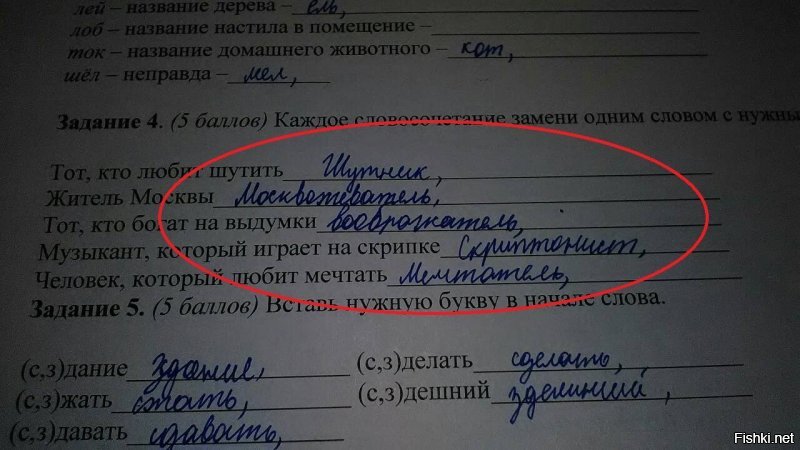 лей – название дерева – ель,
лоб – название настила в помещение –
ток – название домашнего животного – кот,
шёл – неправда – мел,
Задание 4. (5 баллов) Каждое словосочетание замени одним словом с нужны
Тот, кто любит шутить Шутник,
Житель Москвы Москвожеватель,
Тот, кто богат на выдумки вооброжатель,
Музыкант, который играет на скрипке Скриптонист,
Человек, который любит мечтать Мечтатель,
Задание 5. (5 баллов) Вставь нужную букву в начале слова.
(с,з)дание здание, (с,з)делать сделать,
(с,з)жать сжать, (с,з)дешний
(с,з)давать сдавать,
Fishki.net